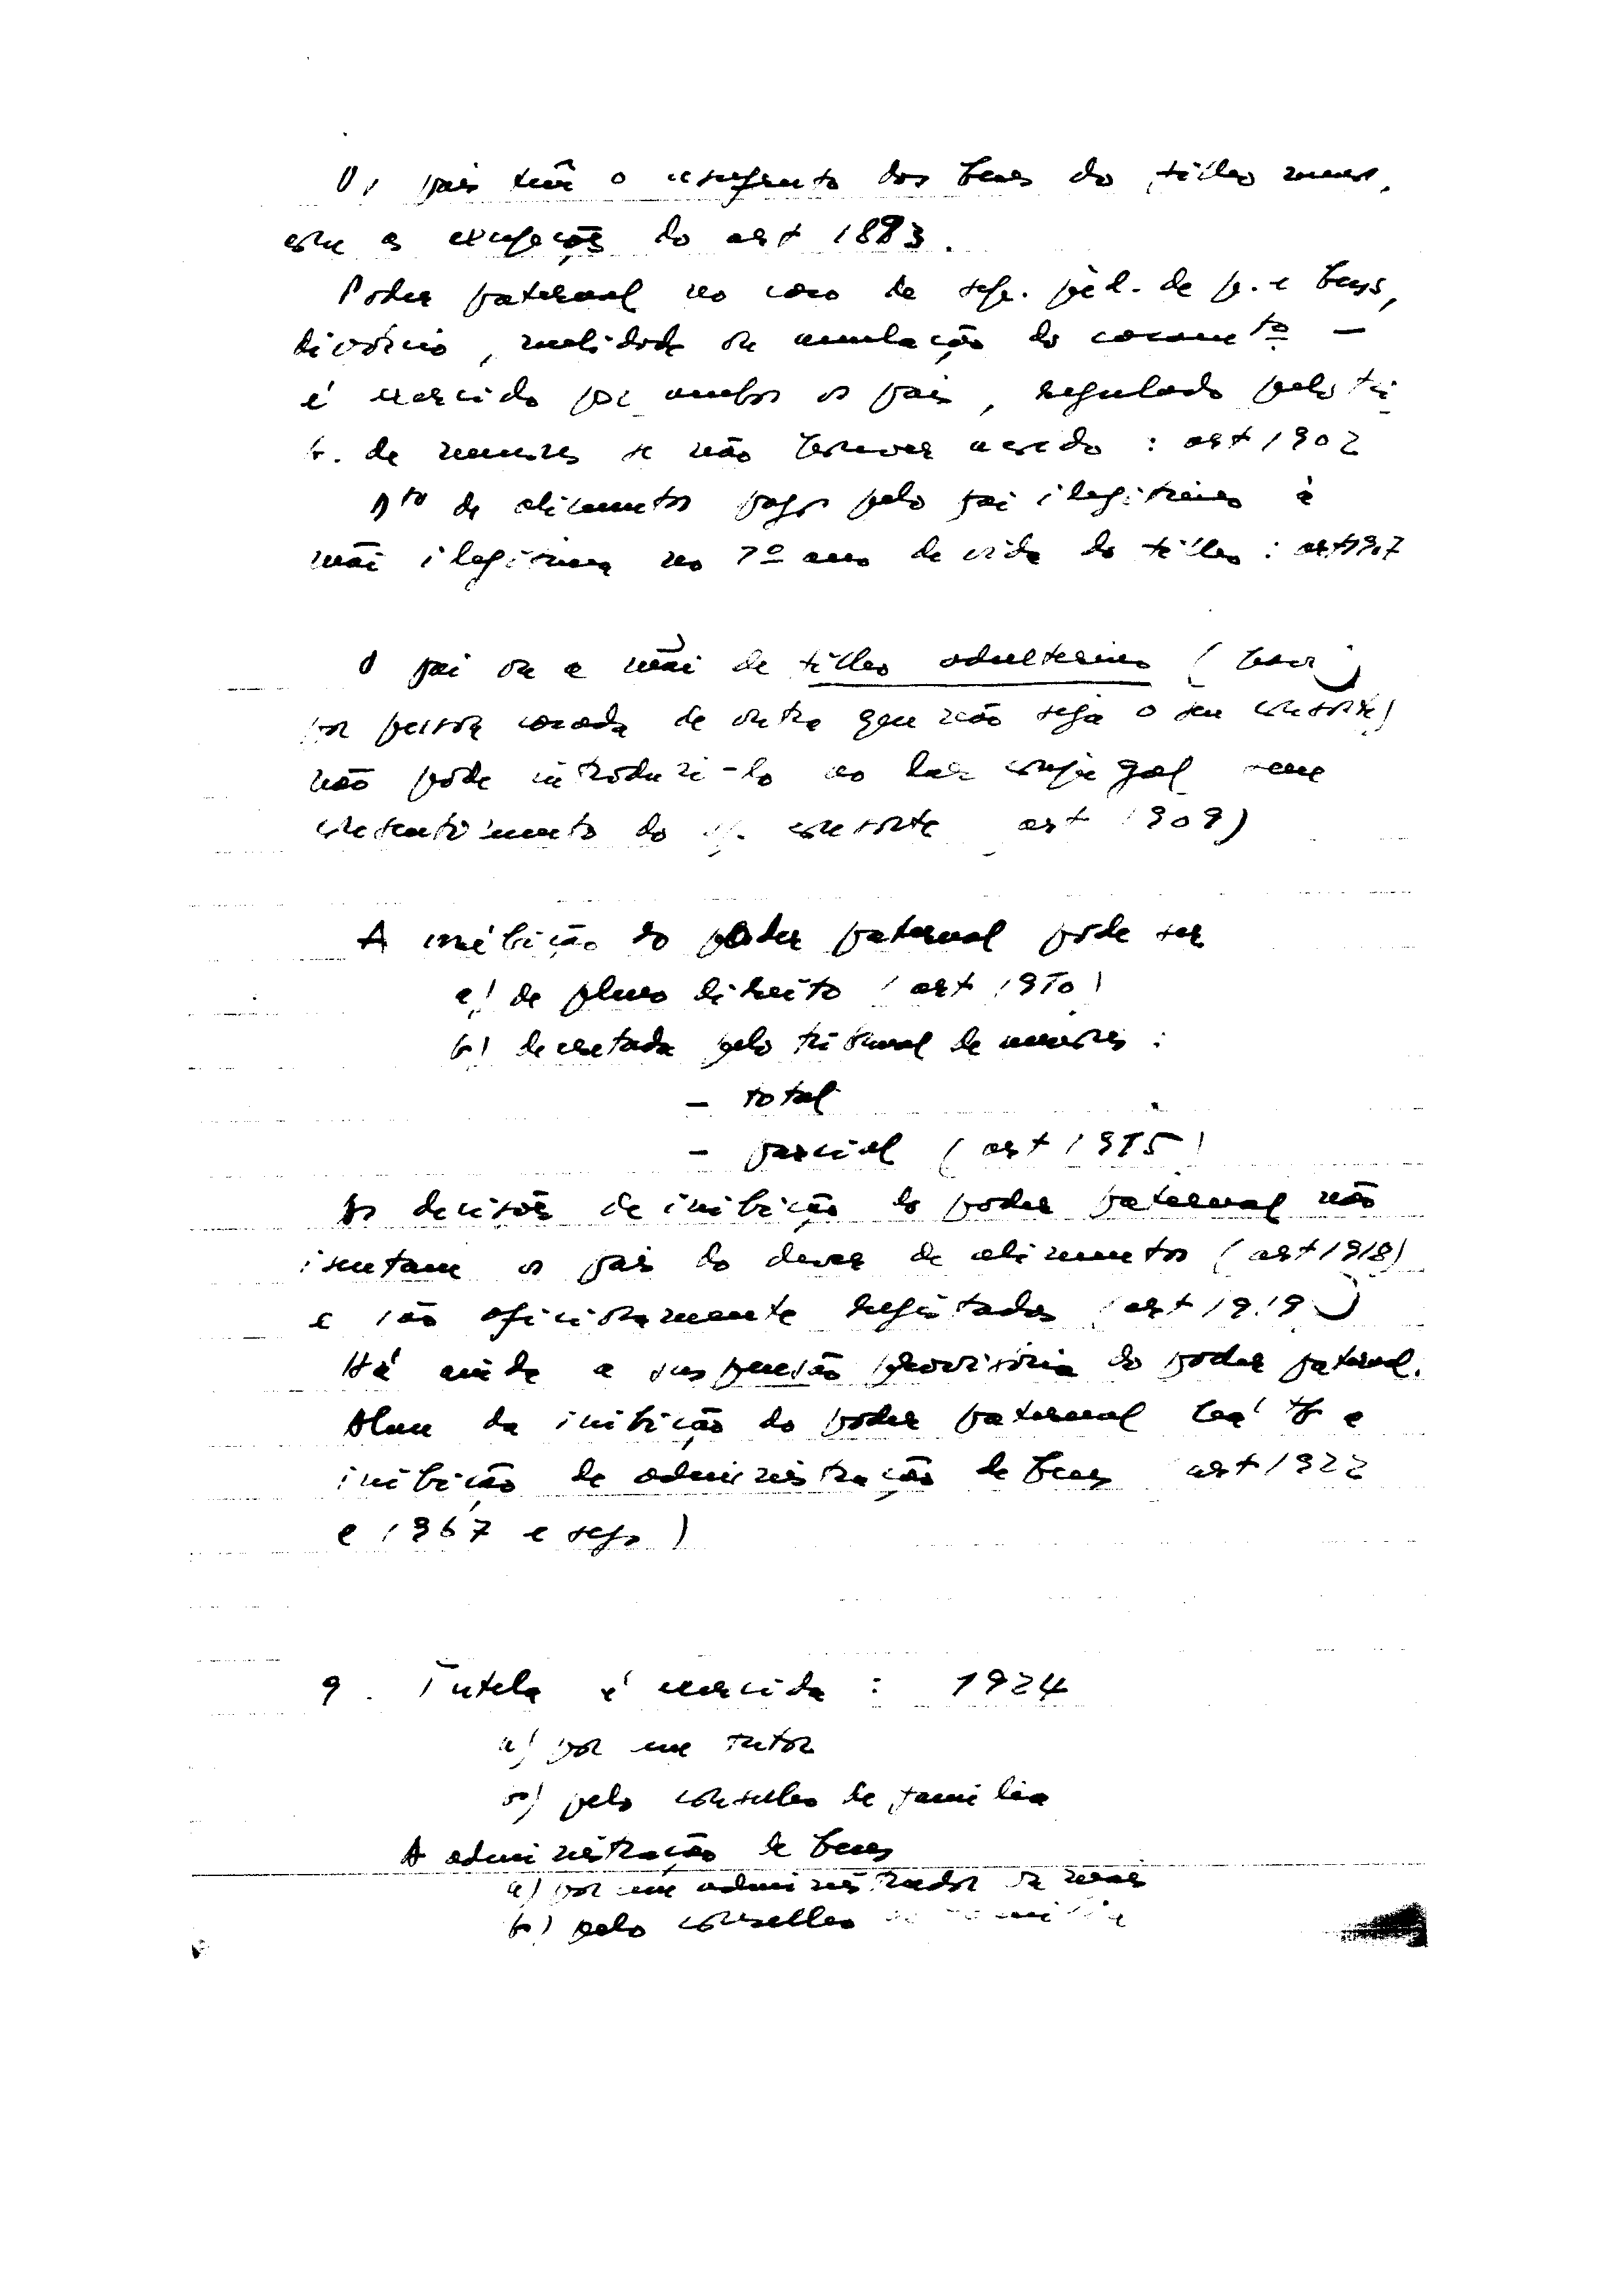 Os pais têm o usufruto dos bens do filho menor,
com as excepções do art 1893.
Poder paternal no caso de sep. jud. de p. e bens,
divórcio, nulidade ou anulação do casamtº —
é exercido por ambos os pais, regulado pelo tri
b. de menores se não houver acordo : art 1902
Dto de alimentos pagos pelo pai ilegítimo à
mãi ilegítima no 1º ano de vida do filho : art 1907
O pai ou a mãi de filho adulterino (havido
por pessoa casada de outra que não seja o seu consorte)
não pode introduzi-lo no lar conjugal sem
consentimento do consorte art 1909)
A inibição do poder paternal pode ser
a) de pleno direito (art 1910)
b) decretada pelo tribunal de menores :
— total
— parcial (art 1915)
As decisões de inibição do poder paternal não
isentam os pais do dever de alimentos (art 1918)
e são oficiosamente registadas (art 1919)
Há ainda a suspensão provisória do poder paternal.
Alem da inibição do poder paternal há tb a
inibição de administração de bens art 1922
e 1967 e segs)
9. Tutela é exercida : 1924
a) por um tutor
b) pelo conselho de familia
A administração de bens
a) por um administrador ou mais
b) pelo conselho de familia